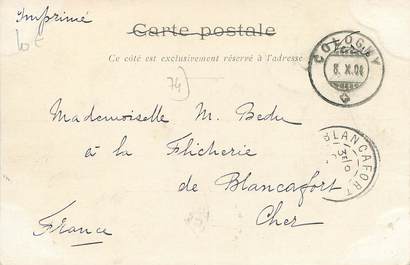 Imprimé
Carte postale
Ce côté est exclusivement réservé à l'adresse
COLOGNY
8. X. 04
74
Mademoiselle M. Bedu
à la Flicherie
de Blancafort
Cher
France
BLANCAFORT